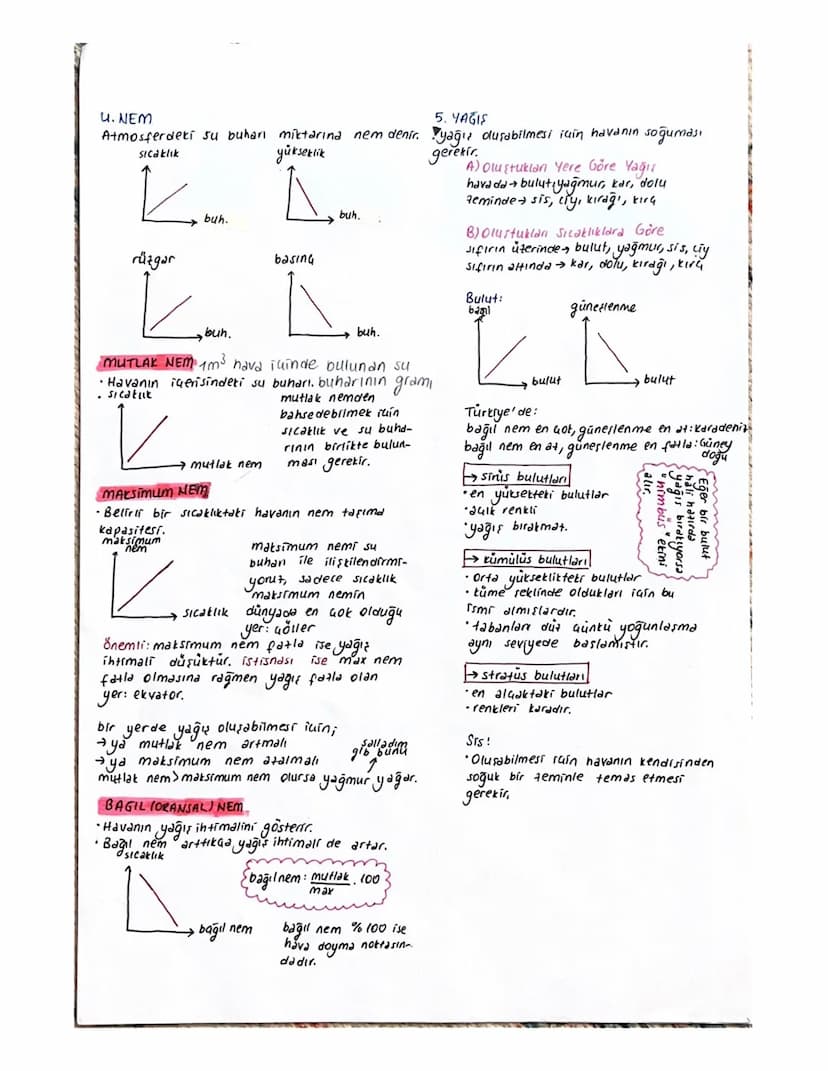 4. NEM
Atmosferdeki su buharı miktarına nem denir.
sıcaklık
yükseklik
buh.
buh.
rüzgar
basınç
buh.
buh.
MUTLAK NEM 1m³ hava içinde bulunan su
• Havanın içerisindeki su buharı. buharının gramı
• sıcaklık
mutlak nem
mutlak nemden
bahsedebilmek için
sıcaklık ve su buha-
rının birlikte bulun-
ması gerekir.
MAKSİMUM NEM
• Belirli bir sıcaklıktaki havanın nem taşıma
kapasitesi.
maksimum
nem
sıcaklık
maksimum nemi su
buharı ile ilişkilendirmi-
yoruz, sadece sıcaklık
maksimum nemin
dünyada en çok olduğu
yer: çöller
önemli: maksimum nem fazla ise yağış
ihtimali düşüktür. istisnası ise max nem
fazla olmasına rağmen yağış fazla olan
yer: ekvator.
bir yerde yağış oluşabilmesi için;
→ ya mutlak nem artmalı
→ ya maksimum nem azalmalı
salladım
gib bunu
mutlak nem > maksimum nem olursa yağmur yağar.
BAĞIL (ORANSAL) NEM
• Havanın yağış ihtimalini gösterir.
• Bağıl nem arttıkça yağış ihtimali de artar.
sıcaklık
bağıl nem
bağıl nem: mutlak . 100
max
bağıl nem %100 ise
hava doyma noktasın-
dadır.
5. YAĞIŞ
yağış oluşabilmesi için havanın soğuması
gerekir.
A) Oluştukları Yere Göre Yağış
havada → bulut, yağmur, kar, dolu
zeminde → sis, çiy, kırağı, kırç
B) Oluştukları Sıcaklıklara Göre
sıfırın üzerinde → bulut, yağmur, sis, çiy
sıfırın altında → kar, dolu, kırağı, kırç
Bulut:
bağıl
bulut
güneşlenme
bulut
Türkiye'de:
bağıl nem en çok, güneşlenme en az: karadeniz
bağıl nem en az, güneşlenme en fazla: Güney
doğu
→ sirüs bulutları
• en yüksekteki bulutlar
• açık renkli
• yağış bırakmaz.
Eğer bir bulut
hali hazırda
yağış bırakıyorsa
"nimbus" ekini
alır.
→ kümülüs bulutları
• Orta yükseklikteki bulutlar
• küme şeklinde oldukları için bu
ismi almışlardır.
• tabanları düz çünkü yoğunlaşma
aynı seviyede başlamıştır.
→ stratüs bulutları
• en alçaktaki bulutlar
• renkleri karadır.
Sis!
• Oluşabilmesi için havanın kendisinden
soğuk bir zeminle temas etmesi
gerekir.